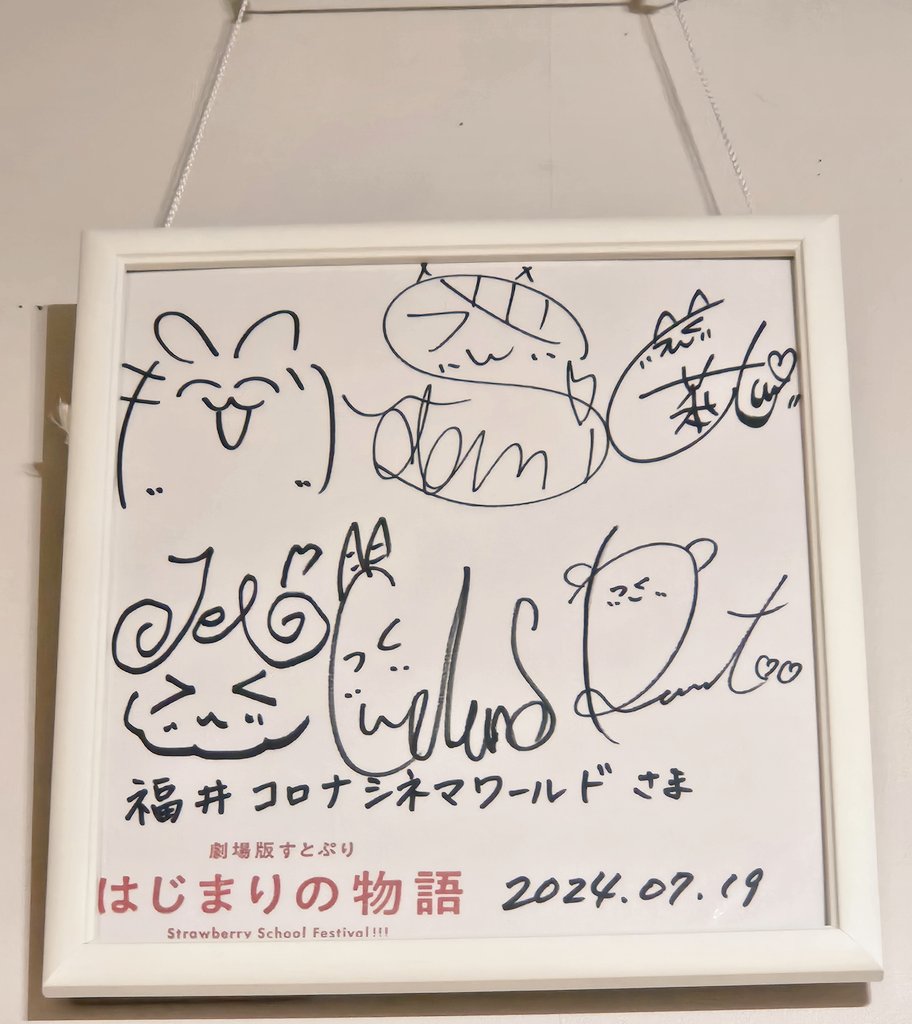 Jel
福井コロナシネマワールド さま
劇場版すとぷり
はじまりの物語
Strawberry School Festival!!!
2024.07.19